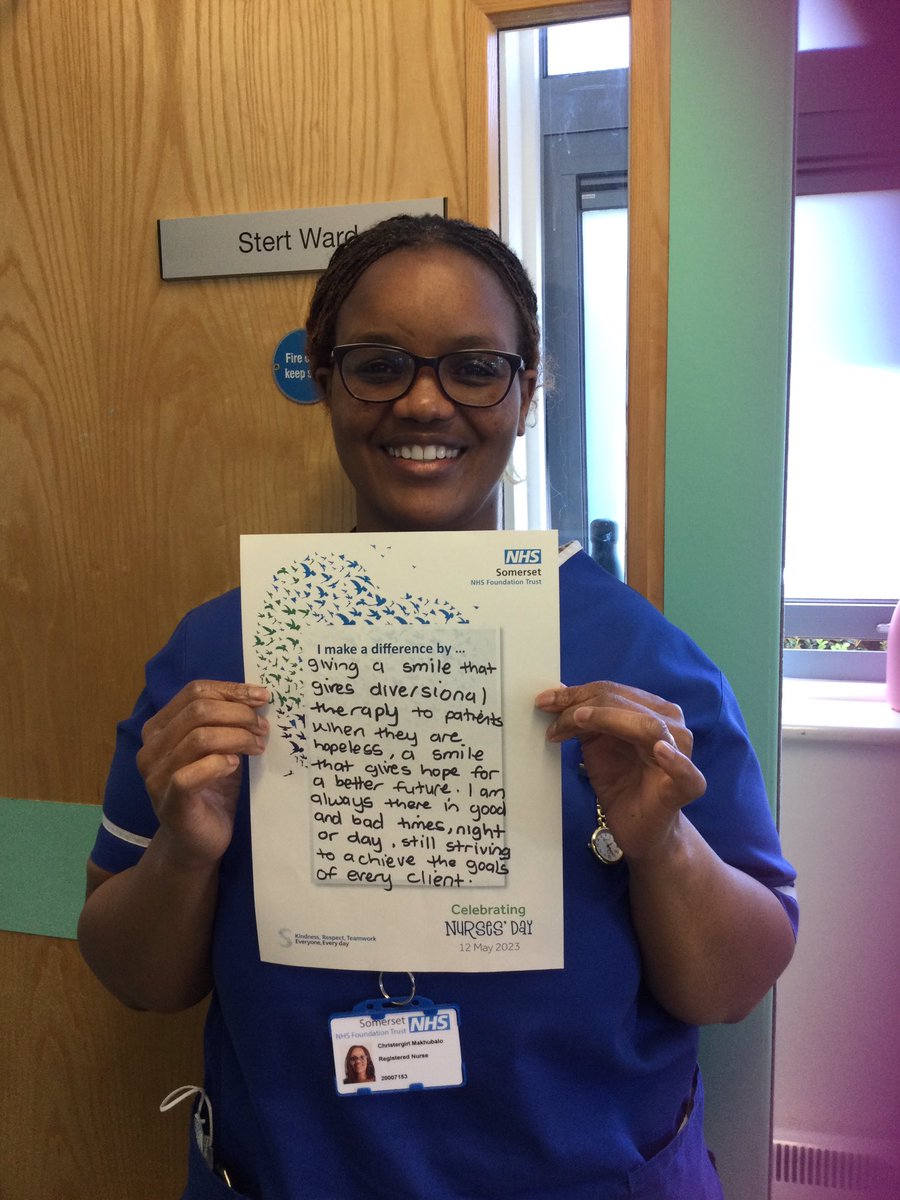 Stert Ward
Fire
keep
NHS
Somerset
NHS Foundation Trust
I make a difference by ...
giving a smile that
gives diversional
therapy to patients
when they are
hopeless, a smile
that gives hope for
a better future. I am
always there in good
and bad times, night
or day, still striving
to achieve the goals
of every client.
Celebrating
NURSES' DAY
12 May 2023
Kindness, Respect, Teamwork
Everyone, Every day
Somerset NHS
NHS Foundation Trust
Christergirl Makhubalo
Registered Nurse
20007153